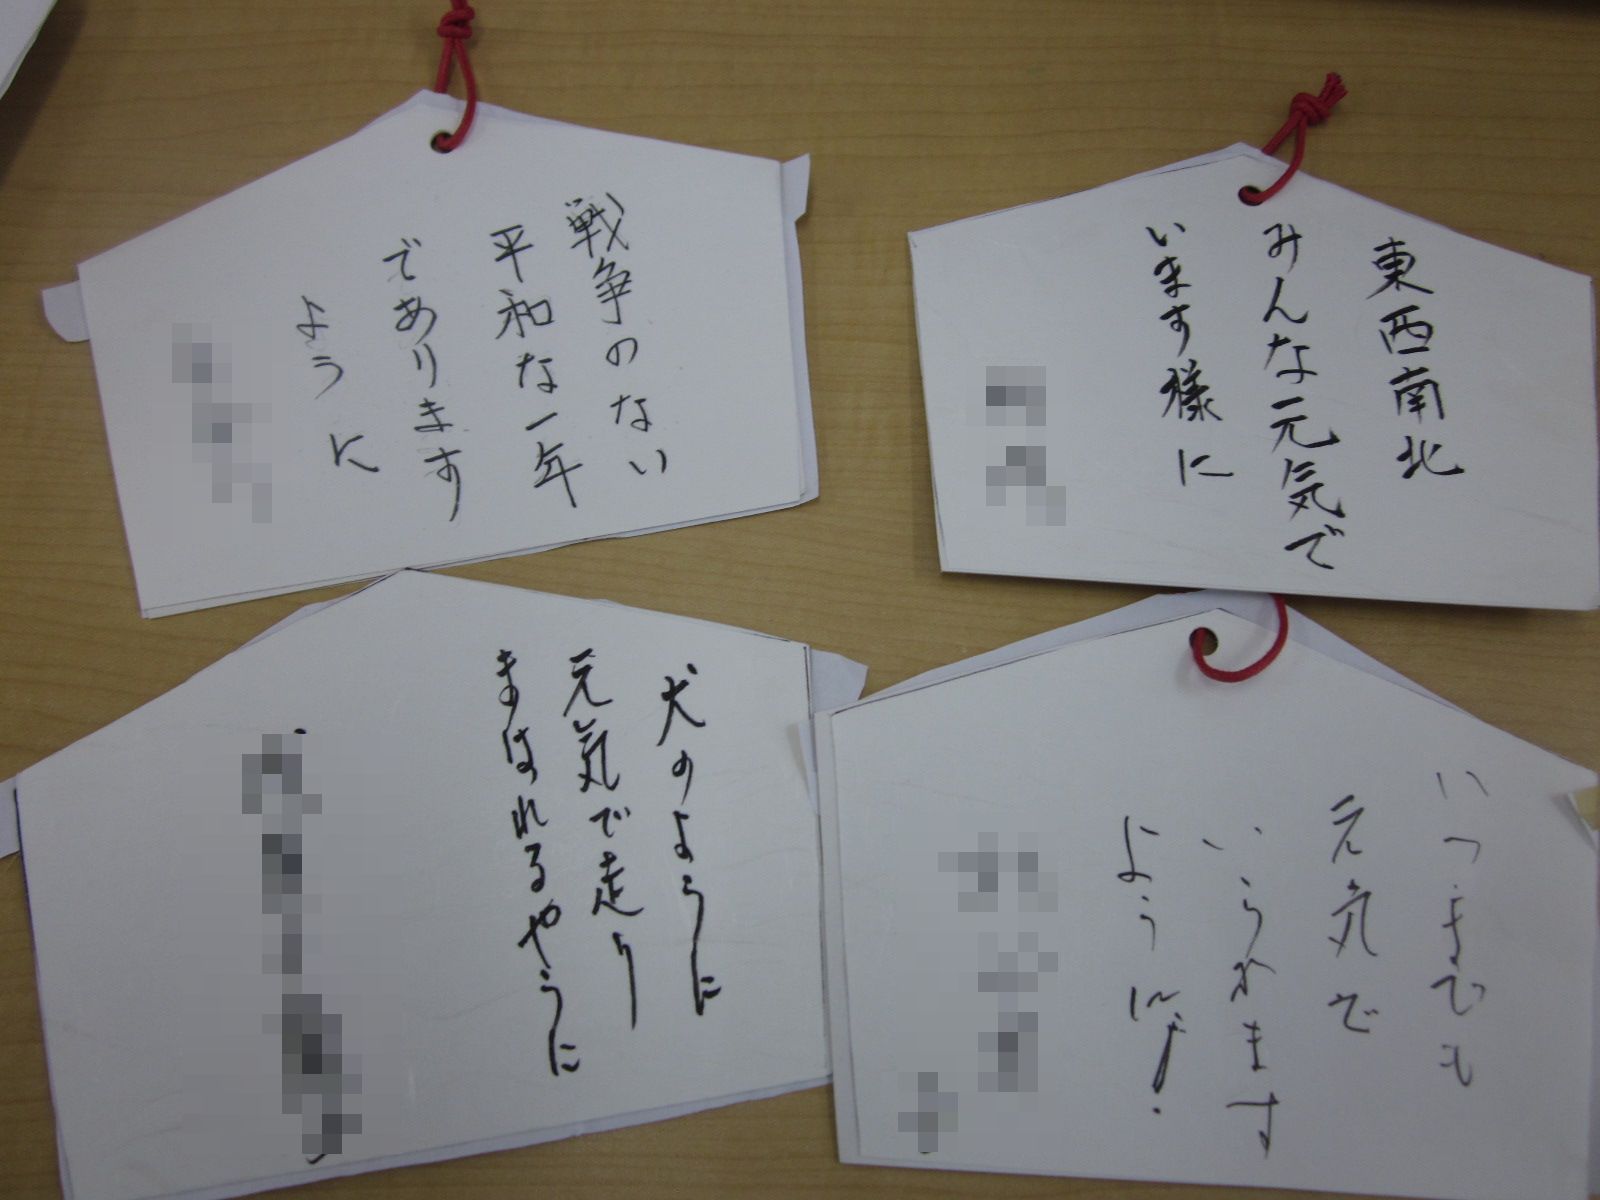 戦争のない
平和な一年
であります
ように
東西南北
みんな元気で
います様に
犬のように
元気で走り
まはれるやうに
いつまでも
元気で
いられます
ように!